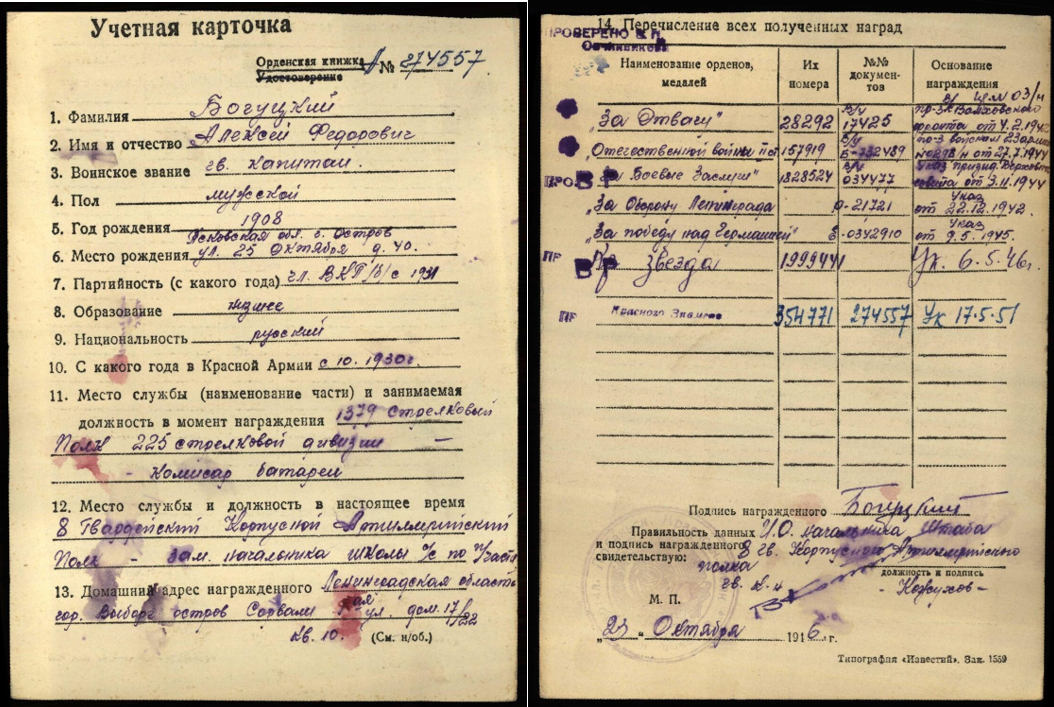 Учетная карточка
Орденская книжка А № 274557
Удостоверение
1. Фамилия Богуцкий
2. Имя и отчество Алексей Федорович
3. Воинское звание гв. капитан.
4. Пол мужской
5. Год рождения 1908
Псковская обл. г. Остров
6. Место рождения ул. 25 Октября д. 40.
7. Партийность (с какого года) чл. ВКП/б/ с 1931
8. Образование низшее
9. Национальность русский
10. С какого года в Красной Армии с 10. 1930г
11. Место службы (наименование части) и занимаемая
должность в момент награждения 1379 стрелковый
Полк 225 стрелковой дивизии
- комисар батареи
12. Место службы и должность в настоящее время
8 Гвардейский Корпусной Артиллерийский
Полк - зам. начальника школы с по
13. Домашний адрес награжденного Ленинградская область
гор. Выборг остров Сорвали ул. дом. 17/22
кв. 10. (См. н/об.)
14. Перечисление всех полученных наград
ПРОВЕРЕНО
Наименование орденов, медалей
Их номера
№№ документов
Основание награждения
„За Отвагу" 28292 в/ч 17425 пр-з Волховского фронта от 4.2.194
„Отечественной войны 157919 Б-732489 пр-з войскам №0298/н от 27.7.1944
„За Боевые Заслуги" 1828524 в/ч 034477 Указ През. Верховн Совета от 3.11.1944
„За Оборону Ленинграда -21721 Указ от 22.12.1942.
„За победу над Германией" -0342910 Указ от 9.5.1945.
Кр Звезда 1999441 Ук. 6.5.46г.
Красного Знамени 354771 274557 Ук 17.5.51
Подпись награжденного Богуцкий
Правильность данных И.О. начальника Штаба
и подпись награжденного 8 гв. Корпусного Артиллерийского
свидетельствую: полка
должность и подпись
гв. к-н - Кожухов -
М. П.
„23" Октября 1946 г.
Типография «Известий». Зак. 1559